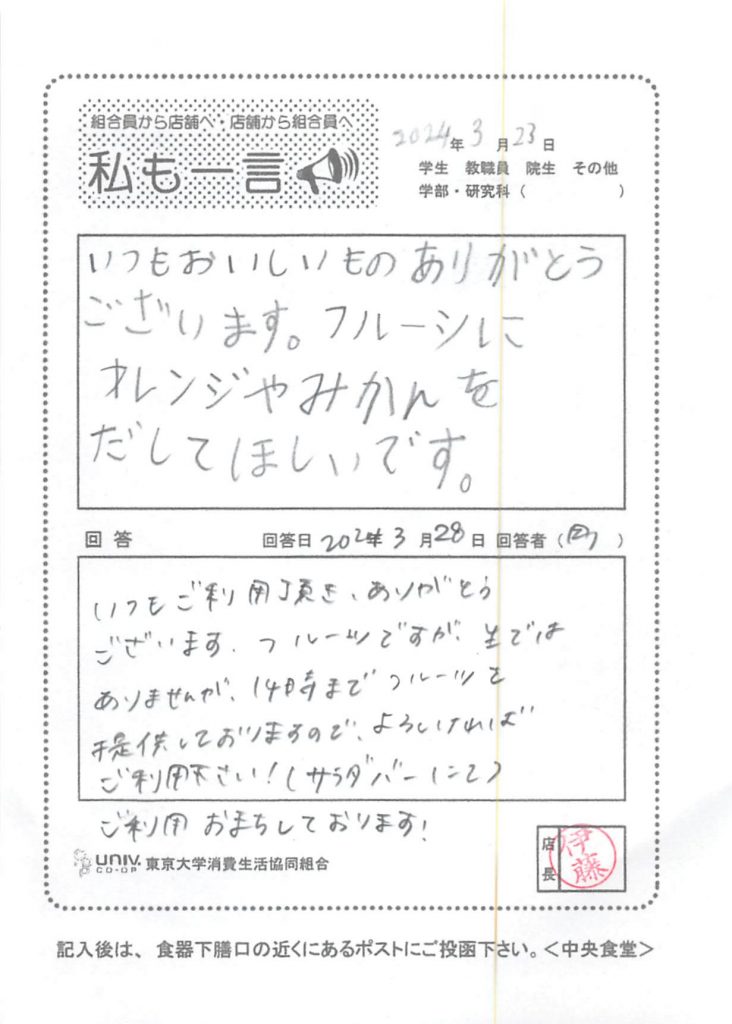 組合員から店舗へ・店舗から組合員へ
私も一言
2024年3月23日
学生 教職員 院生 その他
学部・研究科( )
いつもおいしいものありがとう
ございます。フルーツに
オレンジやみかんを
だしてほしいです。
回答 回答日 2024年3月28日 回答者( )
いつもご利用頂き、ありがとう
ございます。フルーツですが、生では
ありませんが、14時までフルーツを
提供しておりますので、よろしければ
ご利用下さい!(サラダバーにて)
ご利用おまちしております!
UNIV. CO-OP 東京大学消費生活協同組合
店長 伊藤
記入後は、食器下膳口の近くにあるポストにご投函下さい。<中央食堂>